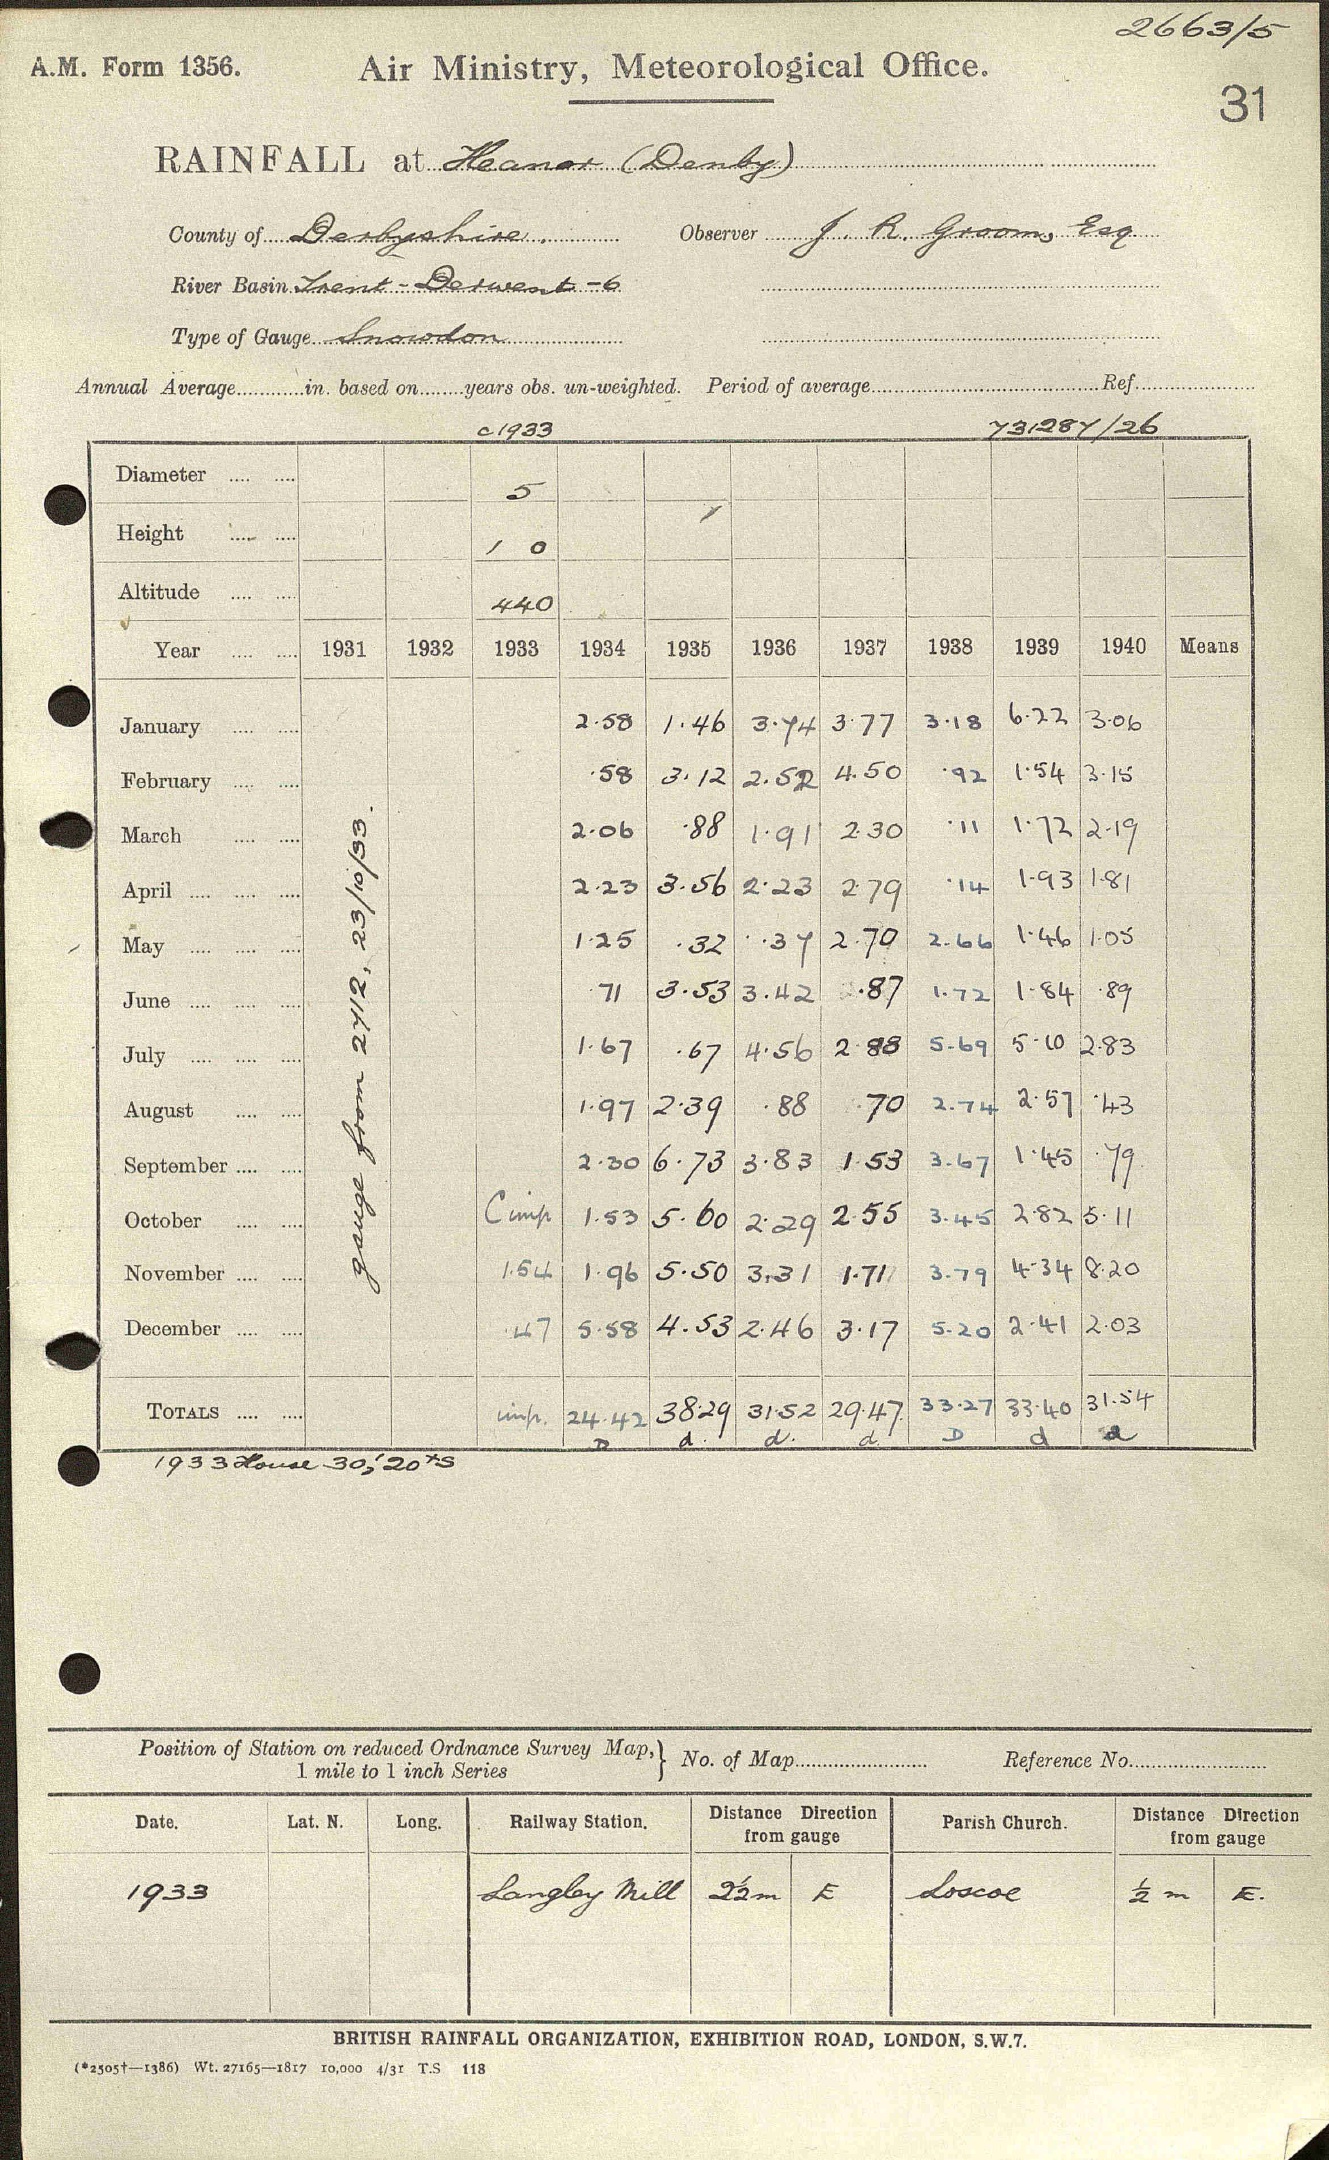 2663/5
A.M. Form 1356.
Air Ministry, Meteorological Office.
31
RAINFALL at Heanor (Denby)
County of Derbyshire. Observer J. R. Groom, Esq
River Basin Trent - Derwent - 6
Type of Gauge Snowdon
Annual Average............in. based on........years obs. un-weighted. Period of average............Ref............
c1933 731287/26
Diameter .... .... 5
Height .... .... 1 0
Altitude .... .... 440
Year .... .... 1931 1932 1933 1934 1935 1936 1937 1938 1939 1940 Means
gauge from 2712, 23/10/33.
January .... .... 2.58 1.46 3.74 3.77 3.18 6.22 3.06
February .... .... .58 3.12 2.52 4.50 .92 1.54 3.15
March .... .... 2.06 .88 1.91 2.30 .11 1.72 2.19
April .... .... .... 2.23 3.56 2.23 2.79 .14 1.93 1.81
May .... .... .... 1.25 .32 .37 2.70 2.66 1.46 1.05
June .... .... .... .71 3.53 3.42 .87 1.72 1.84 .89
July .... .... .... 1.67 .67 4.56 2.88 5.69 5.10 2.83
August .... .... 1.97 2.39 .88 .70 2.74 2.57 .43
September .... .... 2.30 6.73 3.83 1.53 3.67 1.45 .79
October .... .... C imp 1.53 5.60 2.29 2.55 3.45 2.82 5.11
November .... .... 1.54 1.96 5.50 3.31 1.71 3.79 4.34 8.20
December .... .... .47 5.58 4.53 2.46 3.17 5.20 2.41 2.03
TOTALS .... .... imp. 24.42 38.29 31.52 29.47 33.27 33.40 31.54
D d. d. d D d d
1933 House 30', 20+s
Position of Station on reduced Ordnance Survey Map, } No. of Map............ Reference No............
1 mile to 1 inch Series
Date. Lat. N. Long. Railway Station. Distance Direction from gauge Parish Church. Distance Direction from gauge
1933 Langley Mill 2½m E Loscoe ½ m E.
BRITISH RAINFALL ORGANIZATION, EXHIBITION ROAD, LONDON, S.W.7.
(*2505†—1386) Wt. 27165—1817 10,000 4/31 T.S 118